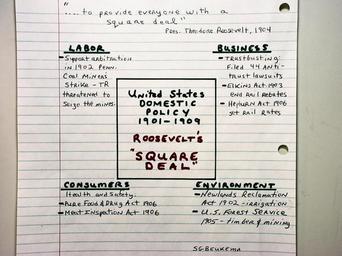 "
.... to provide everyone with a
square deal"
Pres. Theodore Roosevelt, 1904
LABOR
- Support arbitration
in 1902 Penn.
Coal Miners
Strike - TR
threatened to
seize the mines.
BUSINESS
- Trustbusting:
Filed 44 Anti-
trust lawsuits
- Elkins Act 1903
end Rail rebates
- Hepburn Act 1906
set Rail Rates
United States
DOMESTIC
POLICY
1901-1909
ROOSEVELT'S
"SQUARE
DEAL"
CONSUMERS
Health and Safety
- Pure Food & Drug Act 1906
- Meat Inspation Act 1906
ENVIRONMENT
- Newlands Reclamation
Act 1902 - irrigation
- U.S. Forest Service
1905 - timber & mining
SGBEUKEMA